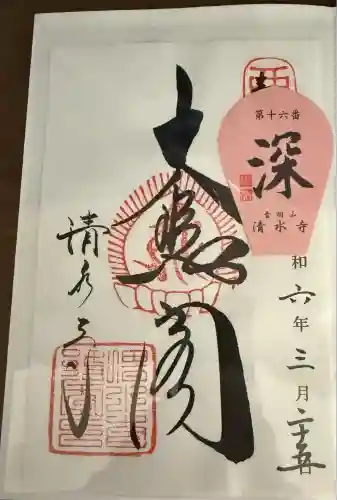 第十六番
深
音羽山
清水寺
和六年三月二十五日
大悲閣
清水寺